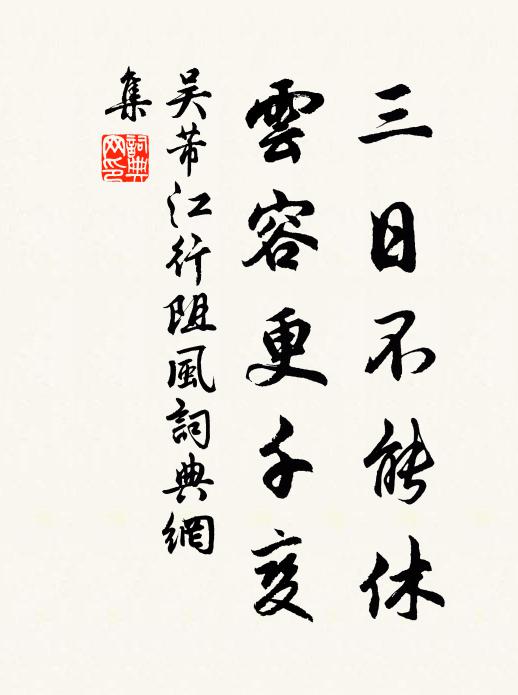 三日不能休
雲容更千变
吴芾江行阻風詞典網
集
詞典
网印